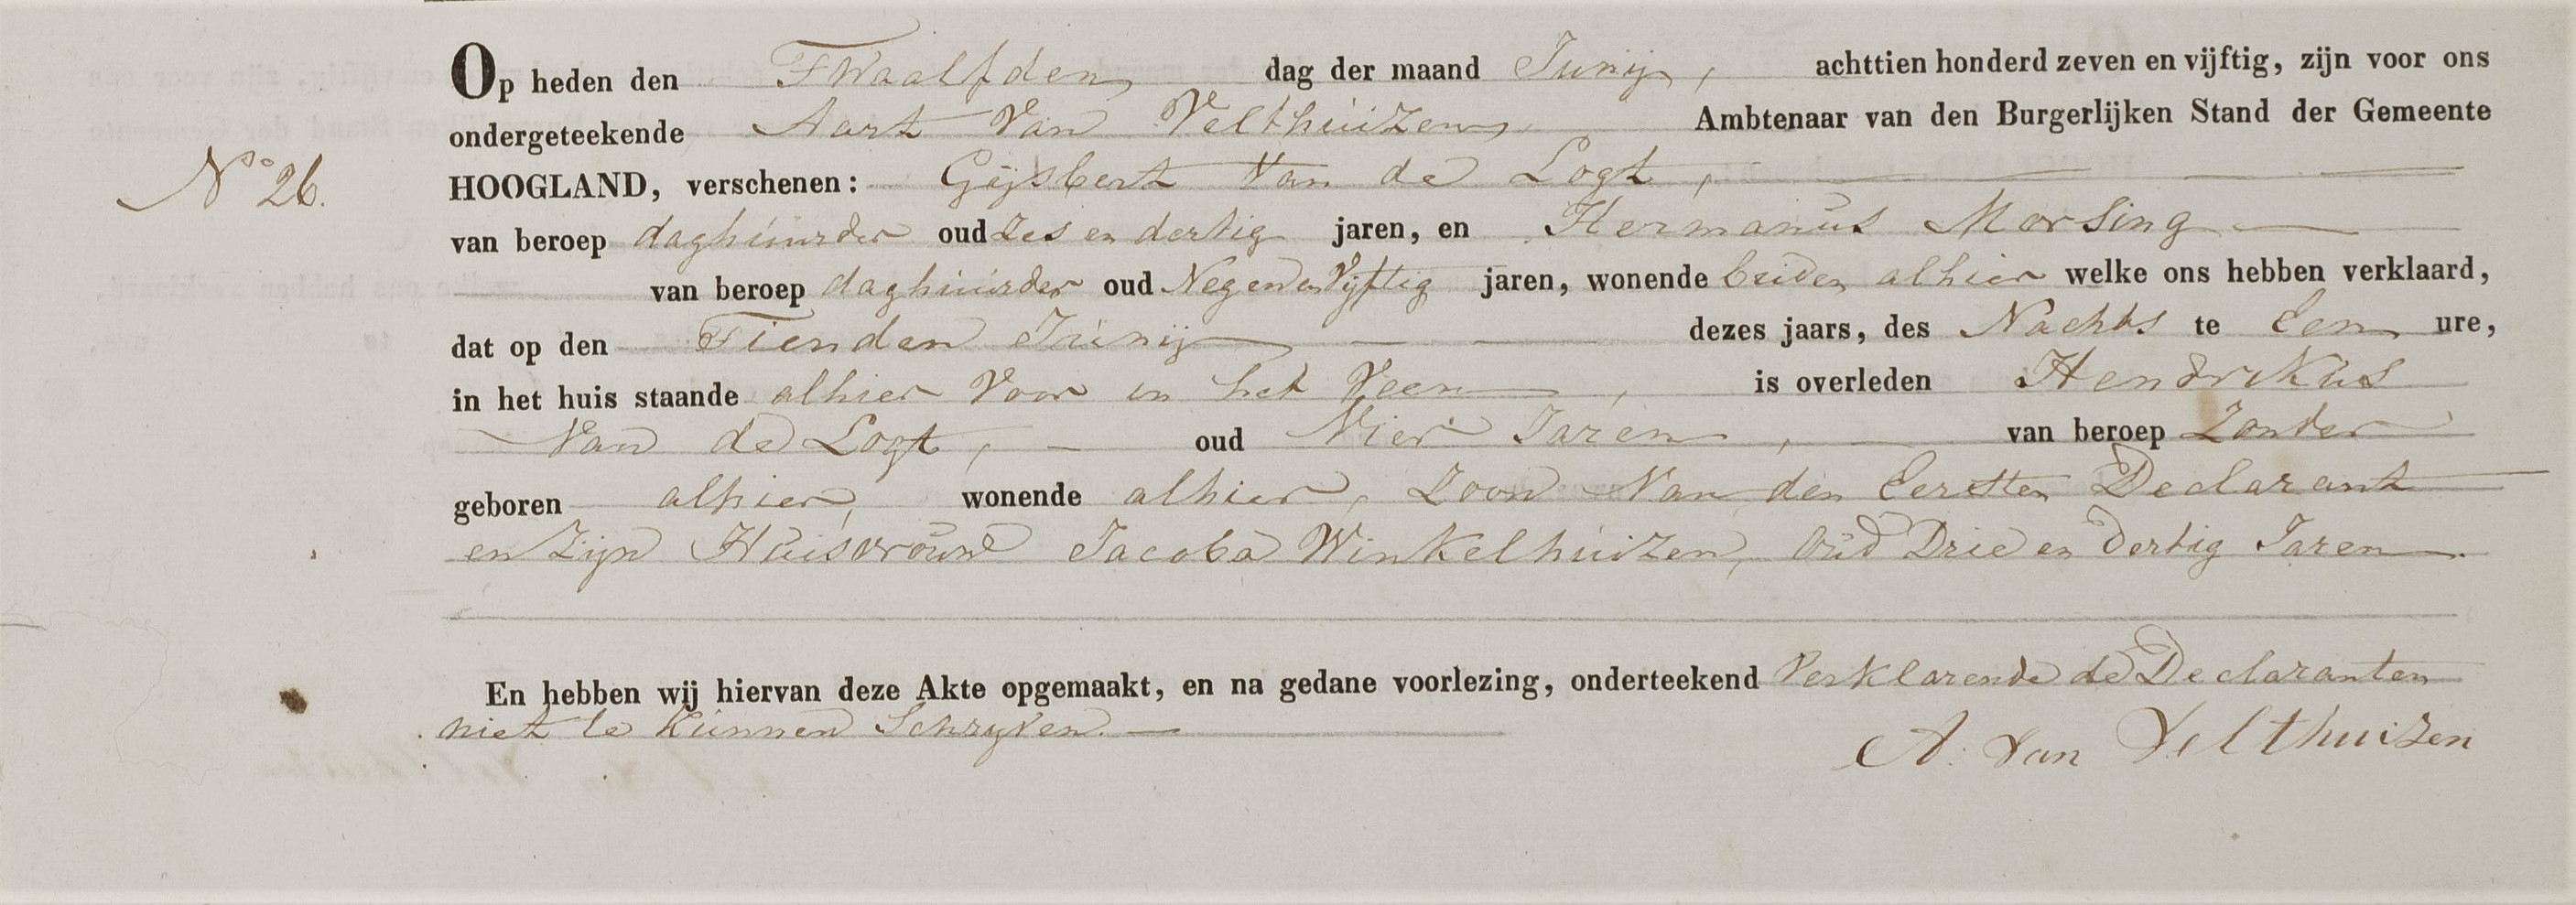 Op heden den Twaalfden dag der maand Junij, achttien honderd zeven en vijftig, zijn voor ons
ondergeteekende Aart Van Velthuizen, Ambtenaar van den Burgerlijken Stand der Gemeente
No 26.
HOOGLAND, verschenen: Gijsbert Van de Logt,
van beroep daghuurder oud Zes en dertig jaren, en Hermanus Morsing
van beroep daghuurder oud Negen en Vijftig jaren, wonende beiden alhier welke ons hebben verklaard,
dat op den Tienden Junij dezes jaars, des Nachts te Een ure,
in het huis staande alhier Voor in het Veen, is overleden Hendrikus
Van de Logt, oud Vier Jaren, van beroep Zonder
geboren alhier, wonende alhier, Zoon Van den Eersten Declarant
en Zijn Huisvrouw Jacoba Winkelhuizen, Oud Drie en Dertig Jaren.
En hebben wij hiervan deze Akte opgemaakt, en na gedane voorlezing, onderteekend Verklarende de Declaranten
niet te kunnen Schryven.
A. van Velthuizen